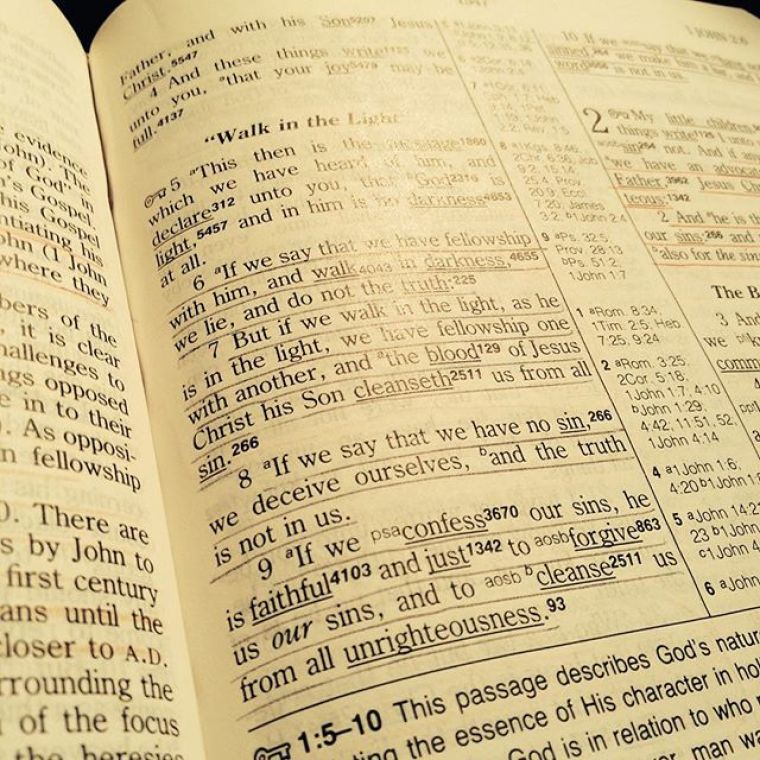 evidence
John). The
of God" in
n's Gospel.
his Gospel
ntiating his
ohn (1 John
where they
bers of the
, it is clear
hallenges to
ngs opposed
e in to their
). As opposi-
n fellowship
0. There are
s by John to
first century
ans until the
closer to A.D.
rrounding the
of the focus
the heresies
Father, and with his Son5207 Jesus
Christ.5547
4 And these things write1125 we
unto you, athat your joy5479 may be
full.4137
"Walk in the Light
5 aThis then is the message1860
which we have heard of him, and
declare312 unto you, that bGod2316 is
light,5457 and in him is no darkness4653
at all.
6 aIf we say that we have fellowship
with him, and walk4043 in darkness,4655
we lie, and do not the truth:225
7 But if we walk in the light, as he
is in the light, we have fellowship one
with another, and athe blood129 of Jesus
Christ his Son cleanseth2511 us from all
sin.266
8 aIf we say that we have no sin,266
we deceive ourselves, band the truth
is not in us.
9 aIf we psaconfess3670 our sins, he
is faithful4103 and just1342 to aosbforgive863
us our sins, and to aosb bcleanse2511 us
from all unrighteousness.93
1:5–10 This passage describes God's natur
ting the essence of His character in hol
God is in relation to who
man wa
9 aPs. 32:5
Prov. 28:13
bPs. 51:2
1John 1:7
1 aRom. 8:34
1Tim. 2:5; Heb.
7:25; 9:24
2 aRom. 3:25
2Cor. 5:18
1John 1:7; 4:10
bJohn 1:29;
4:42; 11:51, 52
1John 4:14
4 a1John 1:6;
4:20 b1John 1:
5 aJohn 14:2
23 b1John
c1John 4
6 aJohn
1 JOHN 2:6
10 If we say that we
sinned,264 we make him a liar, and
word3056 is not in us.
2 My little children,
things write1125 I unto
sin264 not. And if an
awe have an advocat
Father,3962 Jesus Ch
teous:1342
2 And ahe is th
our sins:266 and
balso for the sin
The B
3 And
we
comm